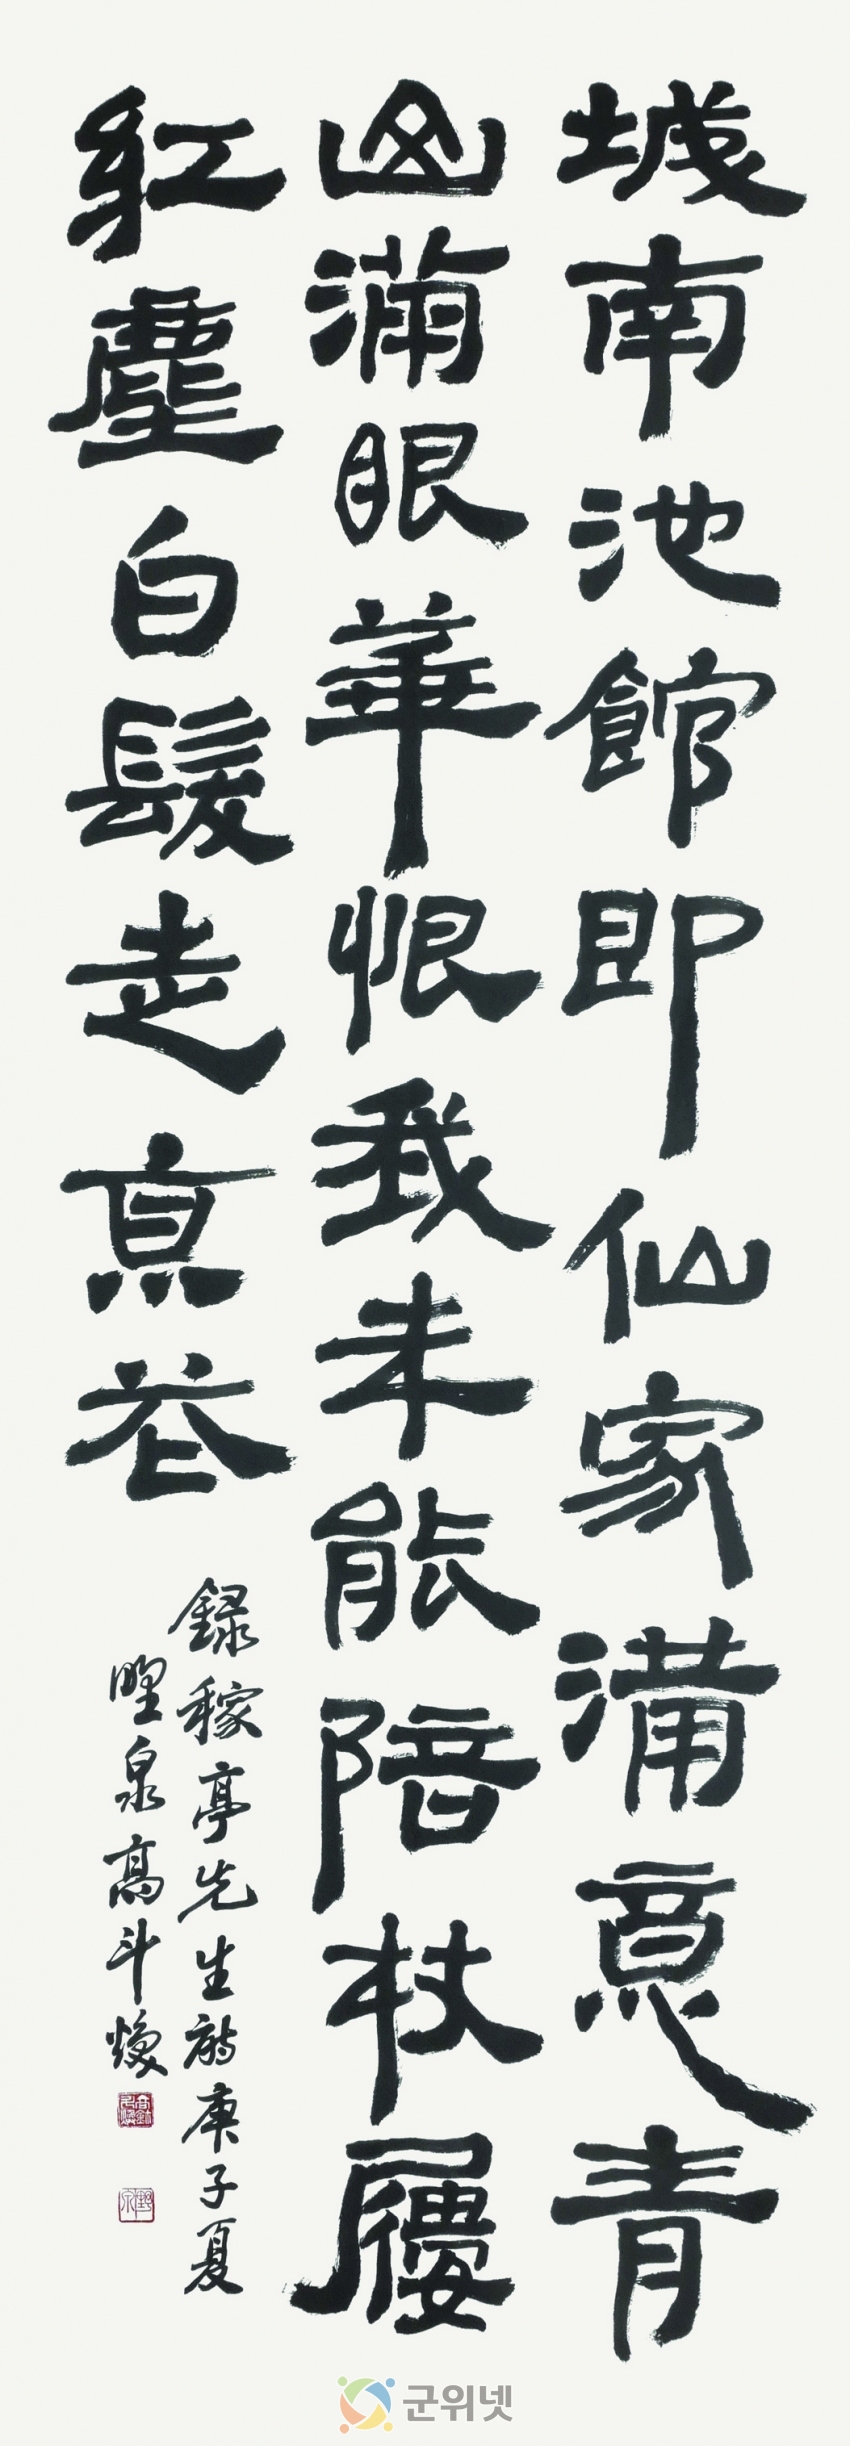 城南池館即仙家滿意青
山滿眼華恨我未能陪杖屨
紅塵白髮走亰花
錄稼亭先生詩庚子夏
野泉高斗煥
군위넷